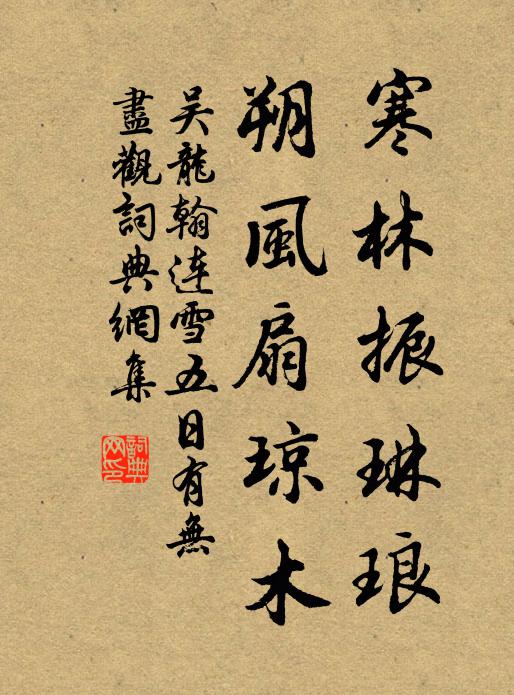 寒林振琳琅
朔風扇琼木
吴龍翰連雪五日有無
盡觀詞典網集
詞典網印